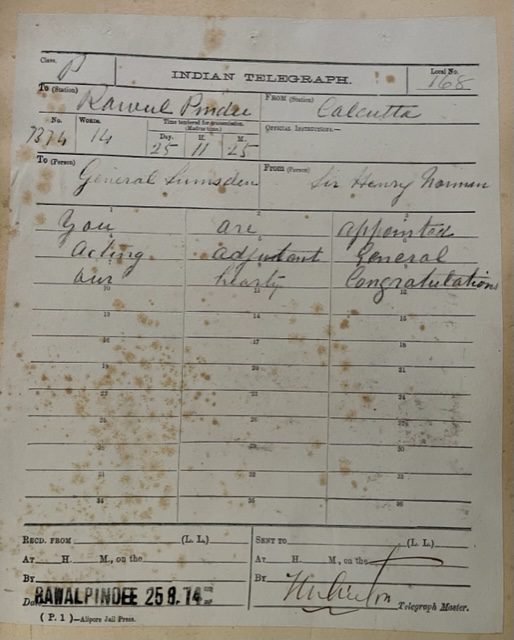 Class. P
INDIAN TELEGRAPH.
Local No.
168
To (Station) Rawul Pindee FROM (Station) Calcutta
No. WORDS. Time tendered for transmission. (Madras time.) OFFICIAL INSTRUCTIONS.—
Day. H. M.
7374 14 25 11 25
To (Person) General Lumsden From (Person) Sir Henry Norman
You are appointed
Acting adjutant General
our hearty Congratulations
RECD. FROM (L. L.) SENT TO (L. L.)
AT H. M., on the AT H. M., on the
BY BY
RAWALPINDEE 25 8. 74 Telegraph Master.
( P. 1 )—Alipore Jail Press.